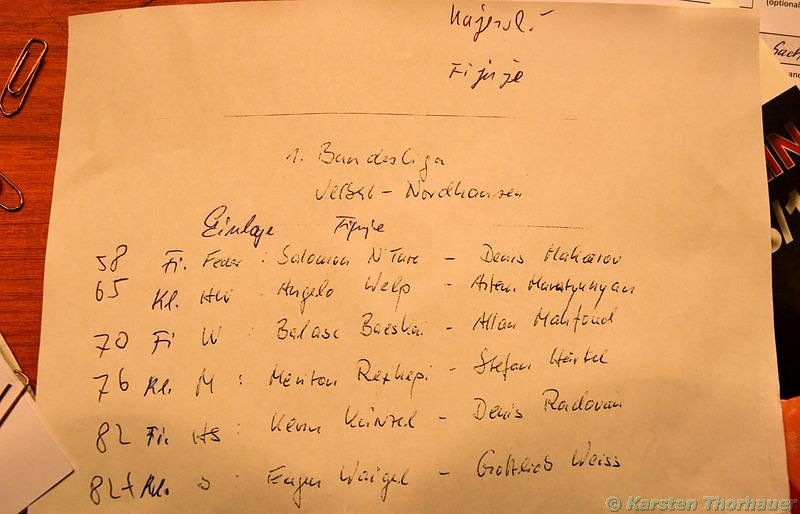 (optional
Sach
1. Bundesliga
Velbert - Nordhausen
Einlage Figuje
58 Fi. Feder : Salomon N'Taro - Denis Makarov
65 Kl. HW : Angelo Welp - Artem Harutyunyan
70 Fi W : Balasc - Allan Mahfoud
76 Kl. M : Meriton Rexhepi - Stefan Härtel
82 Fi. HS : Kevin Künzel - Denis Radovan
82+ Kl. S : Eugen Waigel - Gottlieb Weiss
© Karsten Thorhauer